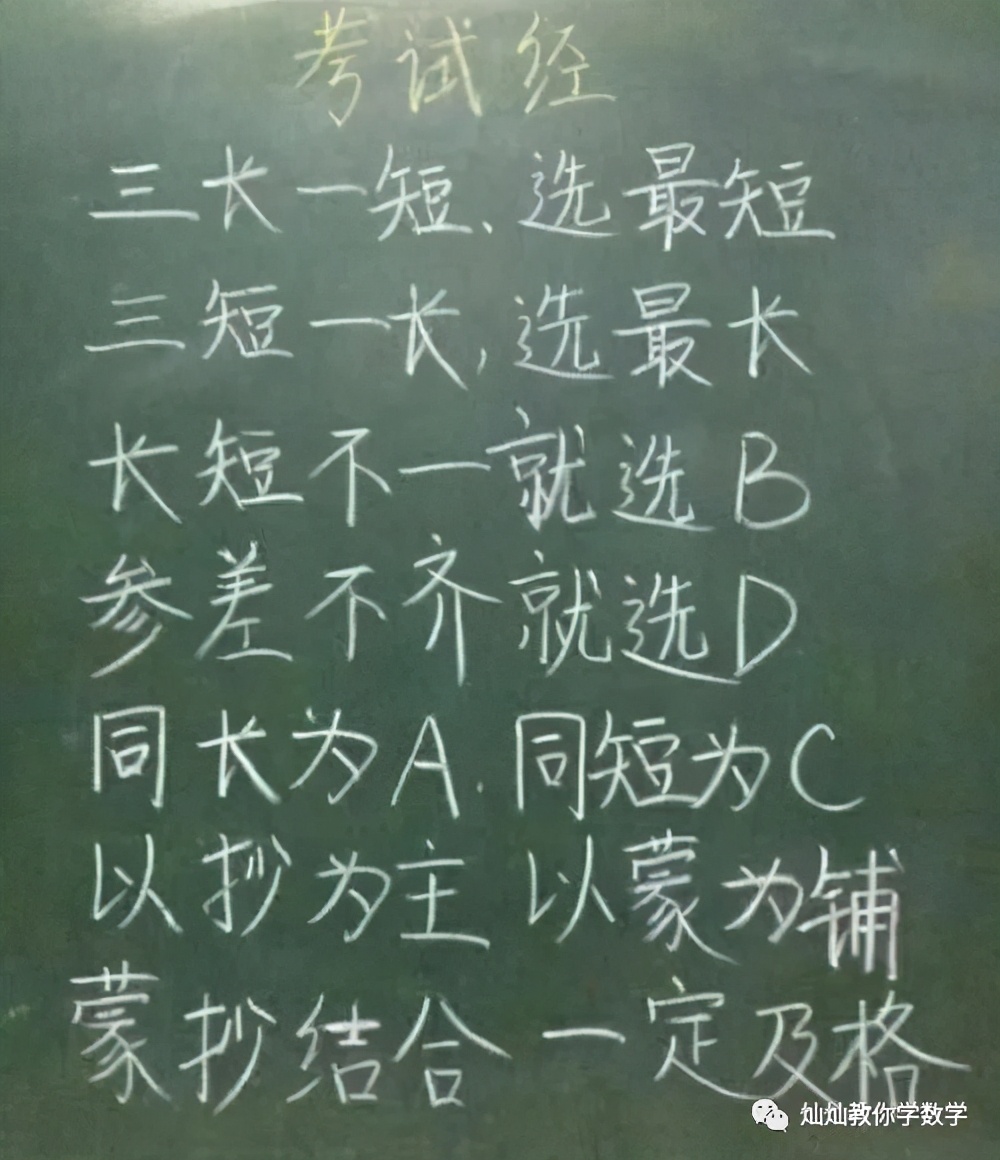 考试经
三长一短、选最短
三短一长,选最长
长短不一就选B
参差不齐就选D
同长为A.同短为C
以抄为主 以蒙为铺
蒙抄结合 一定及格
灿灿教你学数学